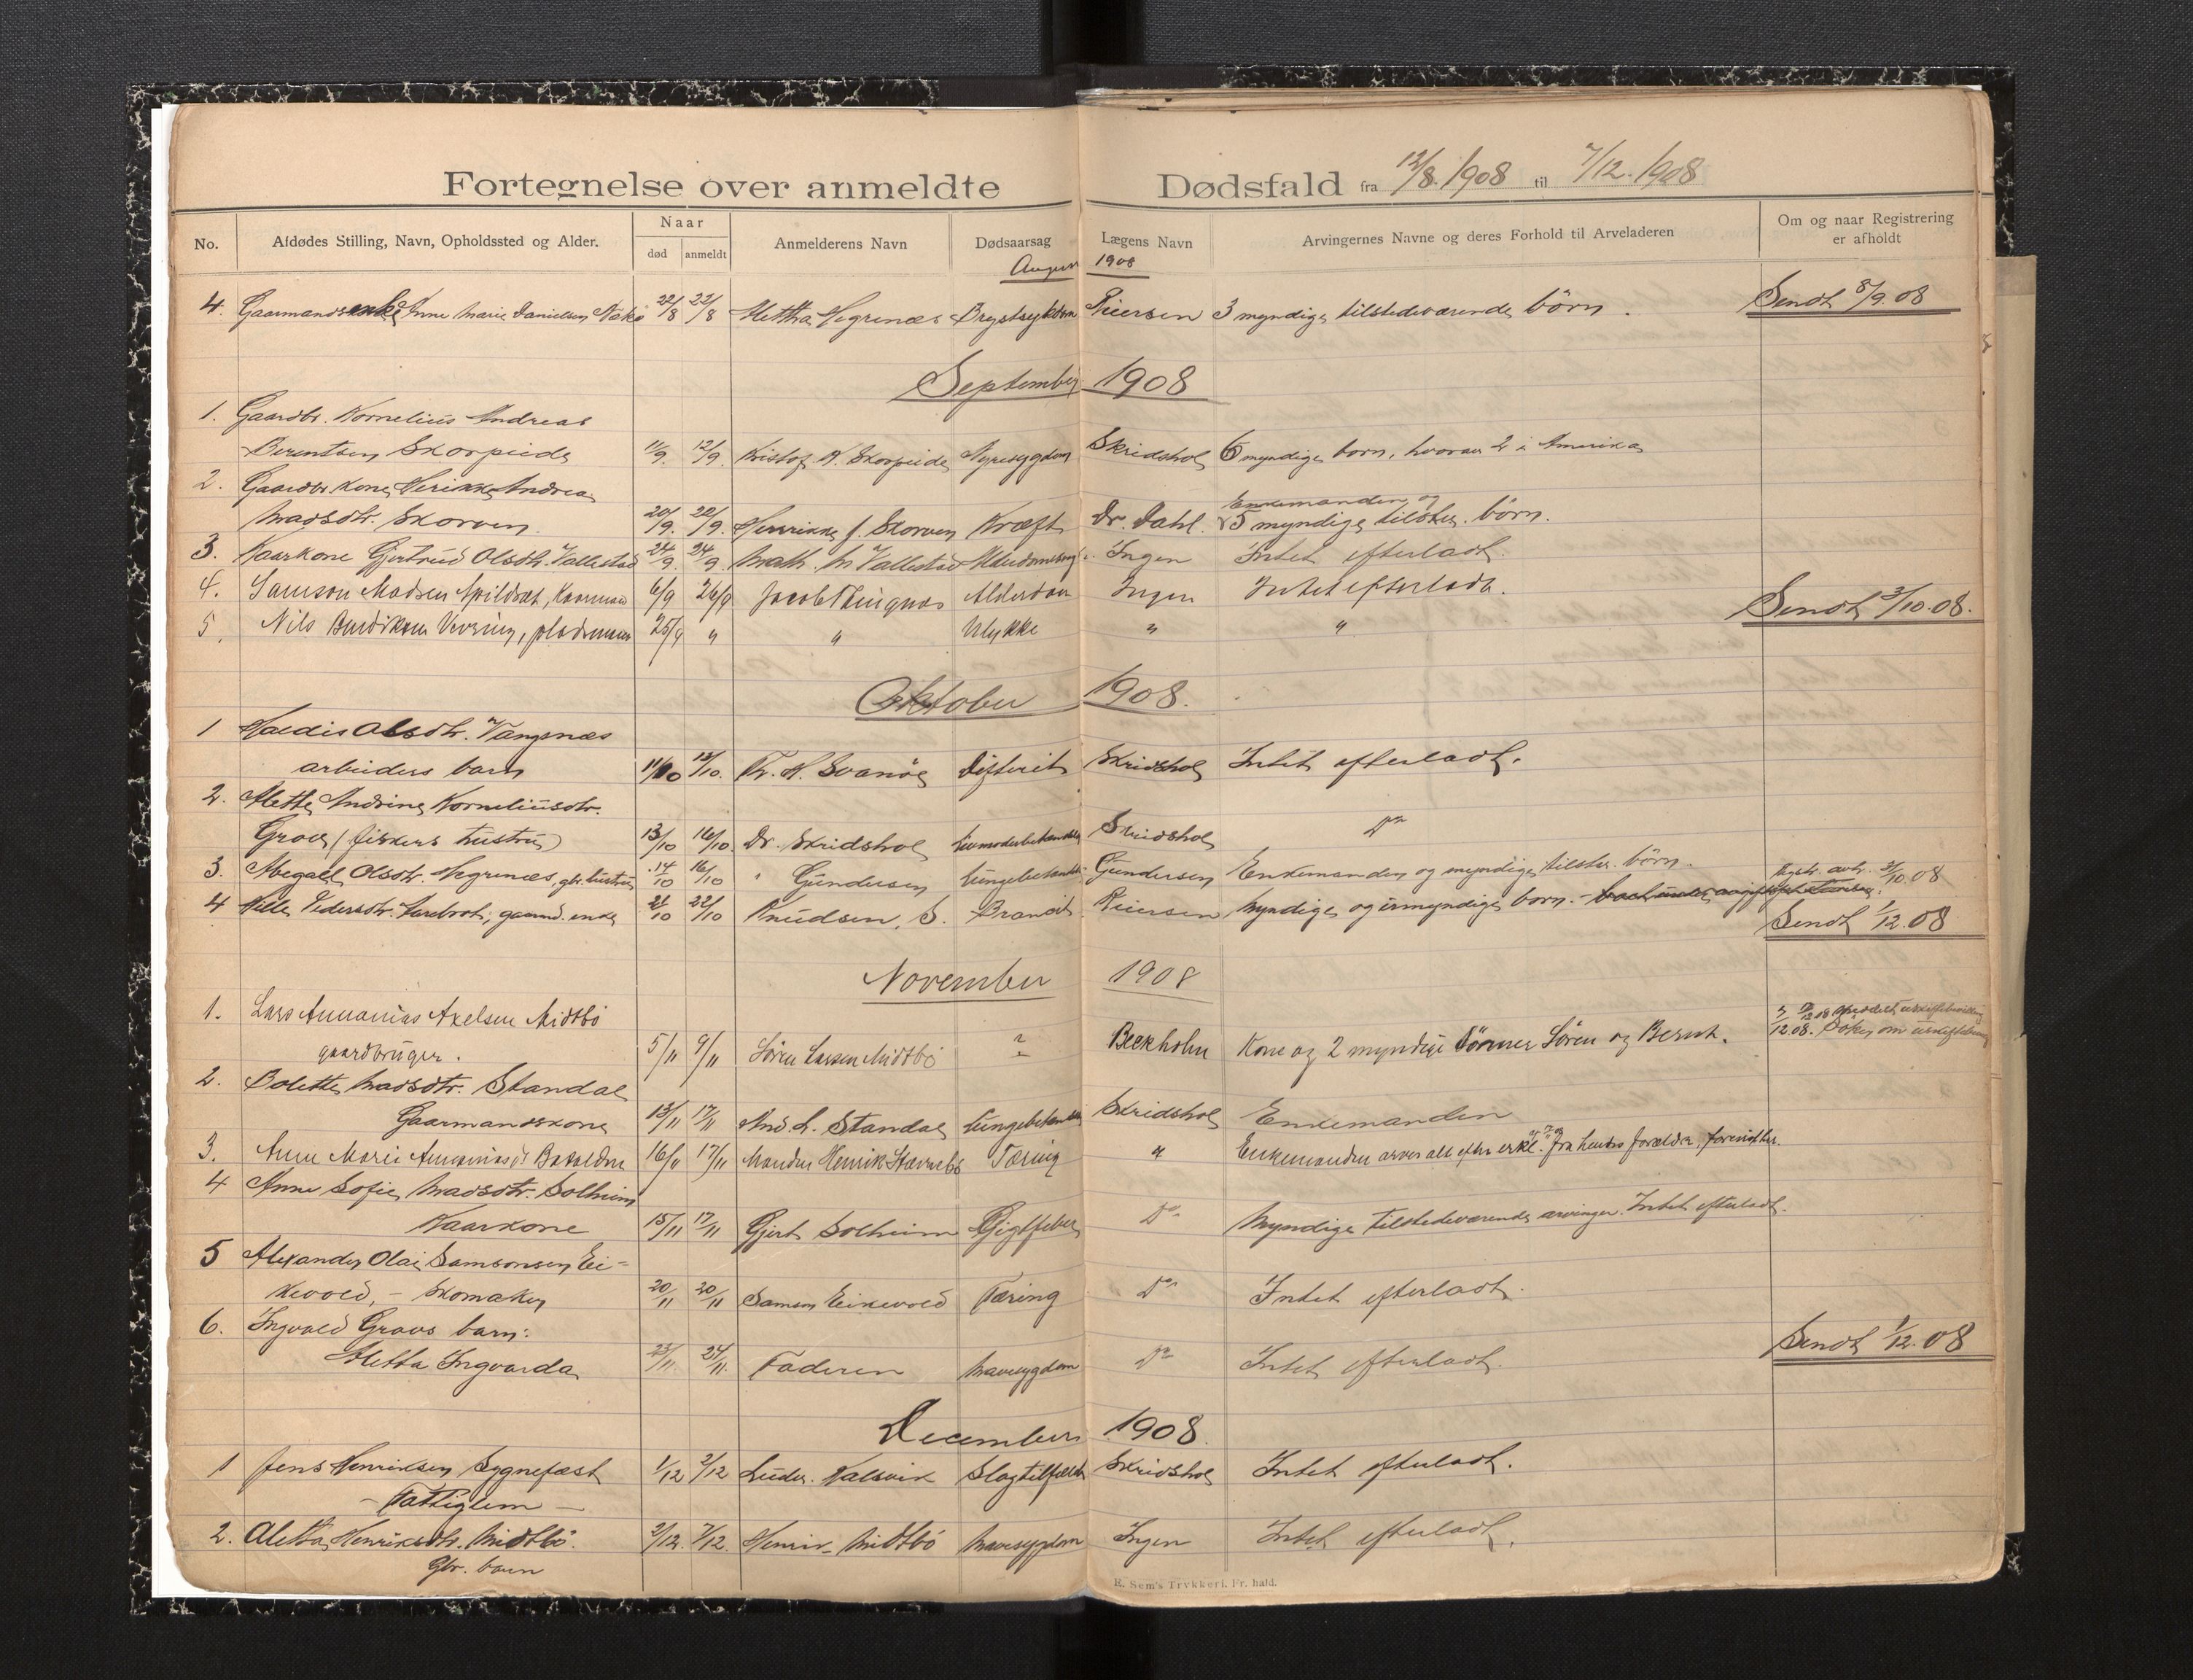 Fortegnelse over anmeldte Dødsfald fra 12/8. 1908 til 7/12. 1908
No. Afdødes Stilling, Navn, Opholdssted og Alder. Naar død anmeldt Anmelderens Navn Dødsaarsag Lægens Navn Arvingernes Navne og deres Forhold til Arveladeren Om og naar Registrering er afholdt
August 1908
4. Gaarmandsenke Anne Marie Danielsen 22/8 22/8 Mettha Hegrenæs Brystsykdom 3 myndige tilstedeværende börn. Sendt 8/9.08
September 1908
1. Gaardbr. Kornelius Andreas
Berentsen Skorpeide 11/9. 12/9. Kristof. K. Skorpeide Nyresygdom Skridshol 6 myndige born, hvorav 2 i Amerika
2. Gaardbr. kone Andrea
Enkemanden og
Madsdtr. Skorven. 20/9. 22/9. J. Skorven Kræft Dr. Dahl. 5 myndige tilsted. börn.
3. Kaarkone Gjertrud Olsdtr. Vallestad 24/9. 24/9. Math. M. Vallestad Ingen Intet efterladt.
4. Samson Madsen Kaarmand 6/9 26/9 Jacob Alderdom Ingen Intet efterladt.
5. Nils Vevring, pladsmand 25/9 " " Ulykke " " Sendt 3/10.08.
Oktober 1908.
1 Olsdtr. Vangsnæs
arbeiders barn 11/10 12/10. Fr. H. Svanöe Difterit Skridshol Intet efterladt.
2. Mette Andrine Korneliusdtr.
Grov (fiskers hustru) 13/10 16/10. Dr. Skridshol Skridshol Do
3. Abegael Olsdtr. Hegrenæs, gbr. hustru 14/10 16/10 " Gundersen Lungebetændelse Gundersen Enkemanden og myndige tilsted. börn.
4 Pedersdtr. gaarmd. enke 21/10 22/10 Knudsen, S. Myndige og umyndige born. Sendt 1/12.08
November 1908
1. Lars Annanias Axelsen Midtbö
gaardbruger. 5/11 9/11 Sören Larsen Midtbö ? Beckholm Kone og 2 myndige Sönner Sören og Bernt.
2. Bolette Madsdtr. Standal
Gaarmandskone 13/11 17/11 And. L. Standal Lungebetændelse Skridshol Enkemanden
3. Anne Marie Batalden 16/11 17/11 Manden Henrik Tæring " Enkemanden arver alt efter erkl. fra hendes forældre,
4 Anne Sofie Madsdtr. Solheim
Kaarkone 15/11 17/11 Gjert Solheim Gigtfeber Do Myndige tilstedeværende arvinger. Intet efterladt.
5 Alexander Olai Samsonsen Ei-
kevold, - Skomaker 20/11 20/11 Samson Eikevold Tæring Do Intet efterladt.
6. Ingvald Grovs barn:
Metta Ingvarda 23/11. 24/11. Faderen Mavesygdom Do Intet efterladt. Sendt 1/12.08
December 1908.
1 Jens Henriksen Sygnefæst 1/12 2/12 Luder. Kalsvik Slagtilfælde Skridshol Intet efterladt.
- Fattiglem -
2. Aletta Henriksdtr. Midtbö. 2/12. 7/12. Henrik Midtbö Mavesygdom Ingen Intet efterladt.
Gbr. barn
E. Sem's Trykkeri, Fr. hald.